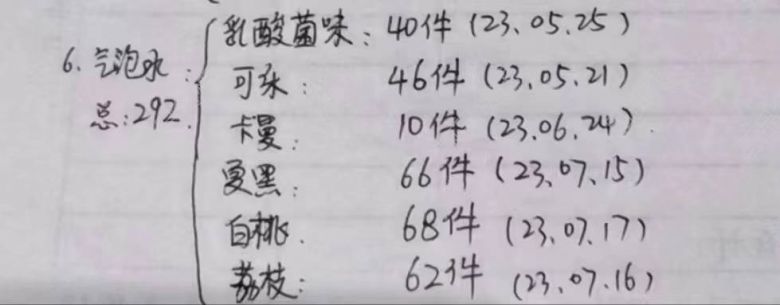 6. 气泡水:
总:292.
乳酸菌味: 40件 (23.05.25)
可乐: 46件 (23.05.21)
卡曼: 10件 (23.06.24)
夏黑: 66件 (23.07.15)
白桃. 68件 (23.07.17)
荔枝: 62件 (23.07.16)